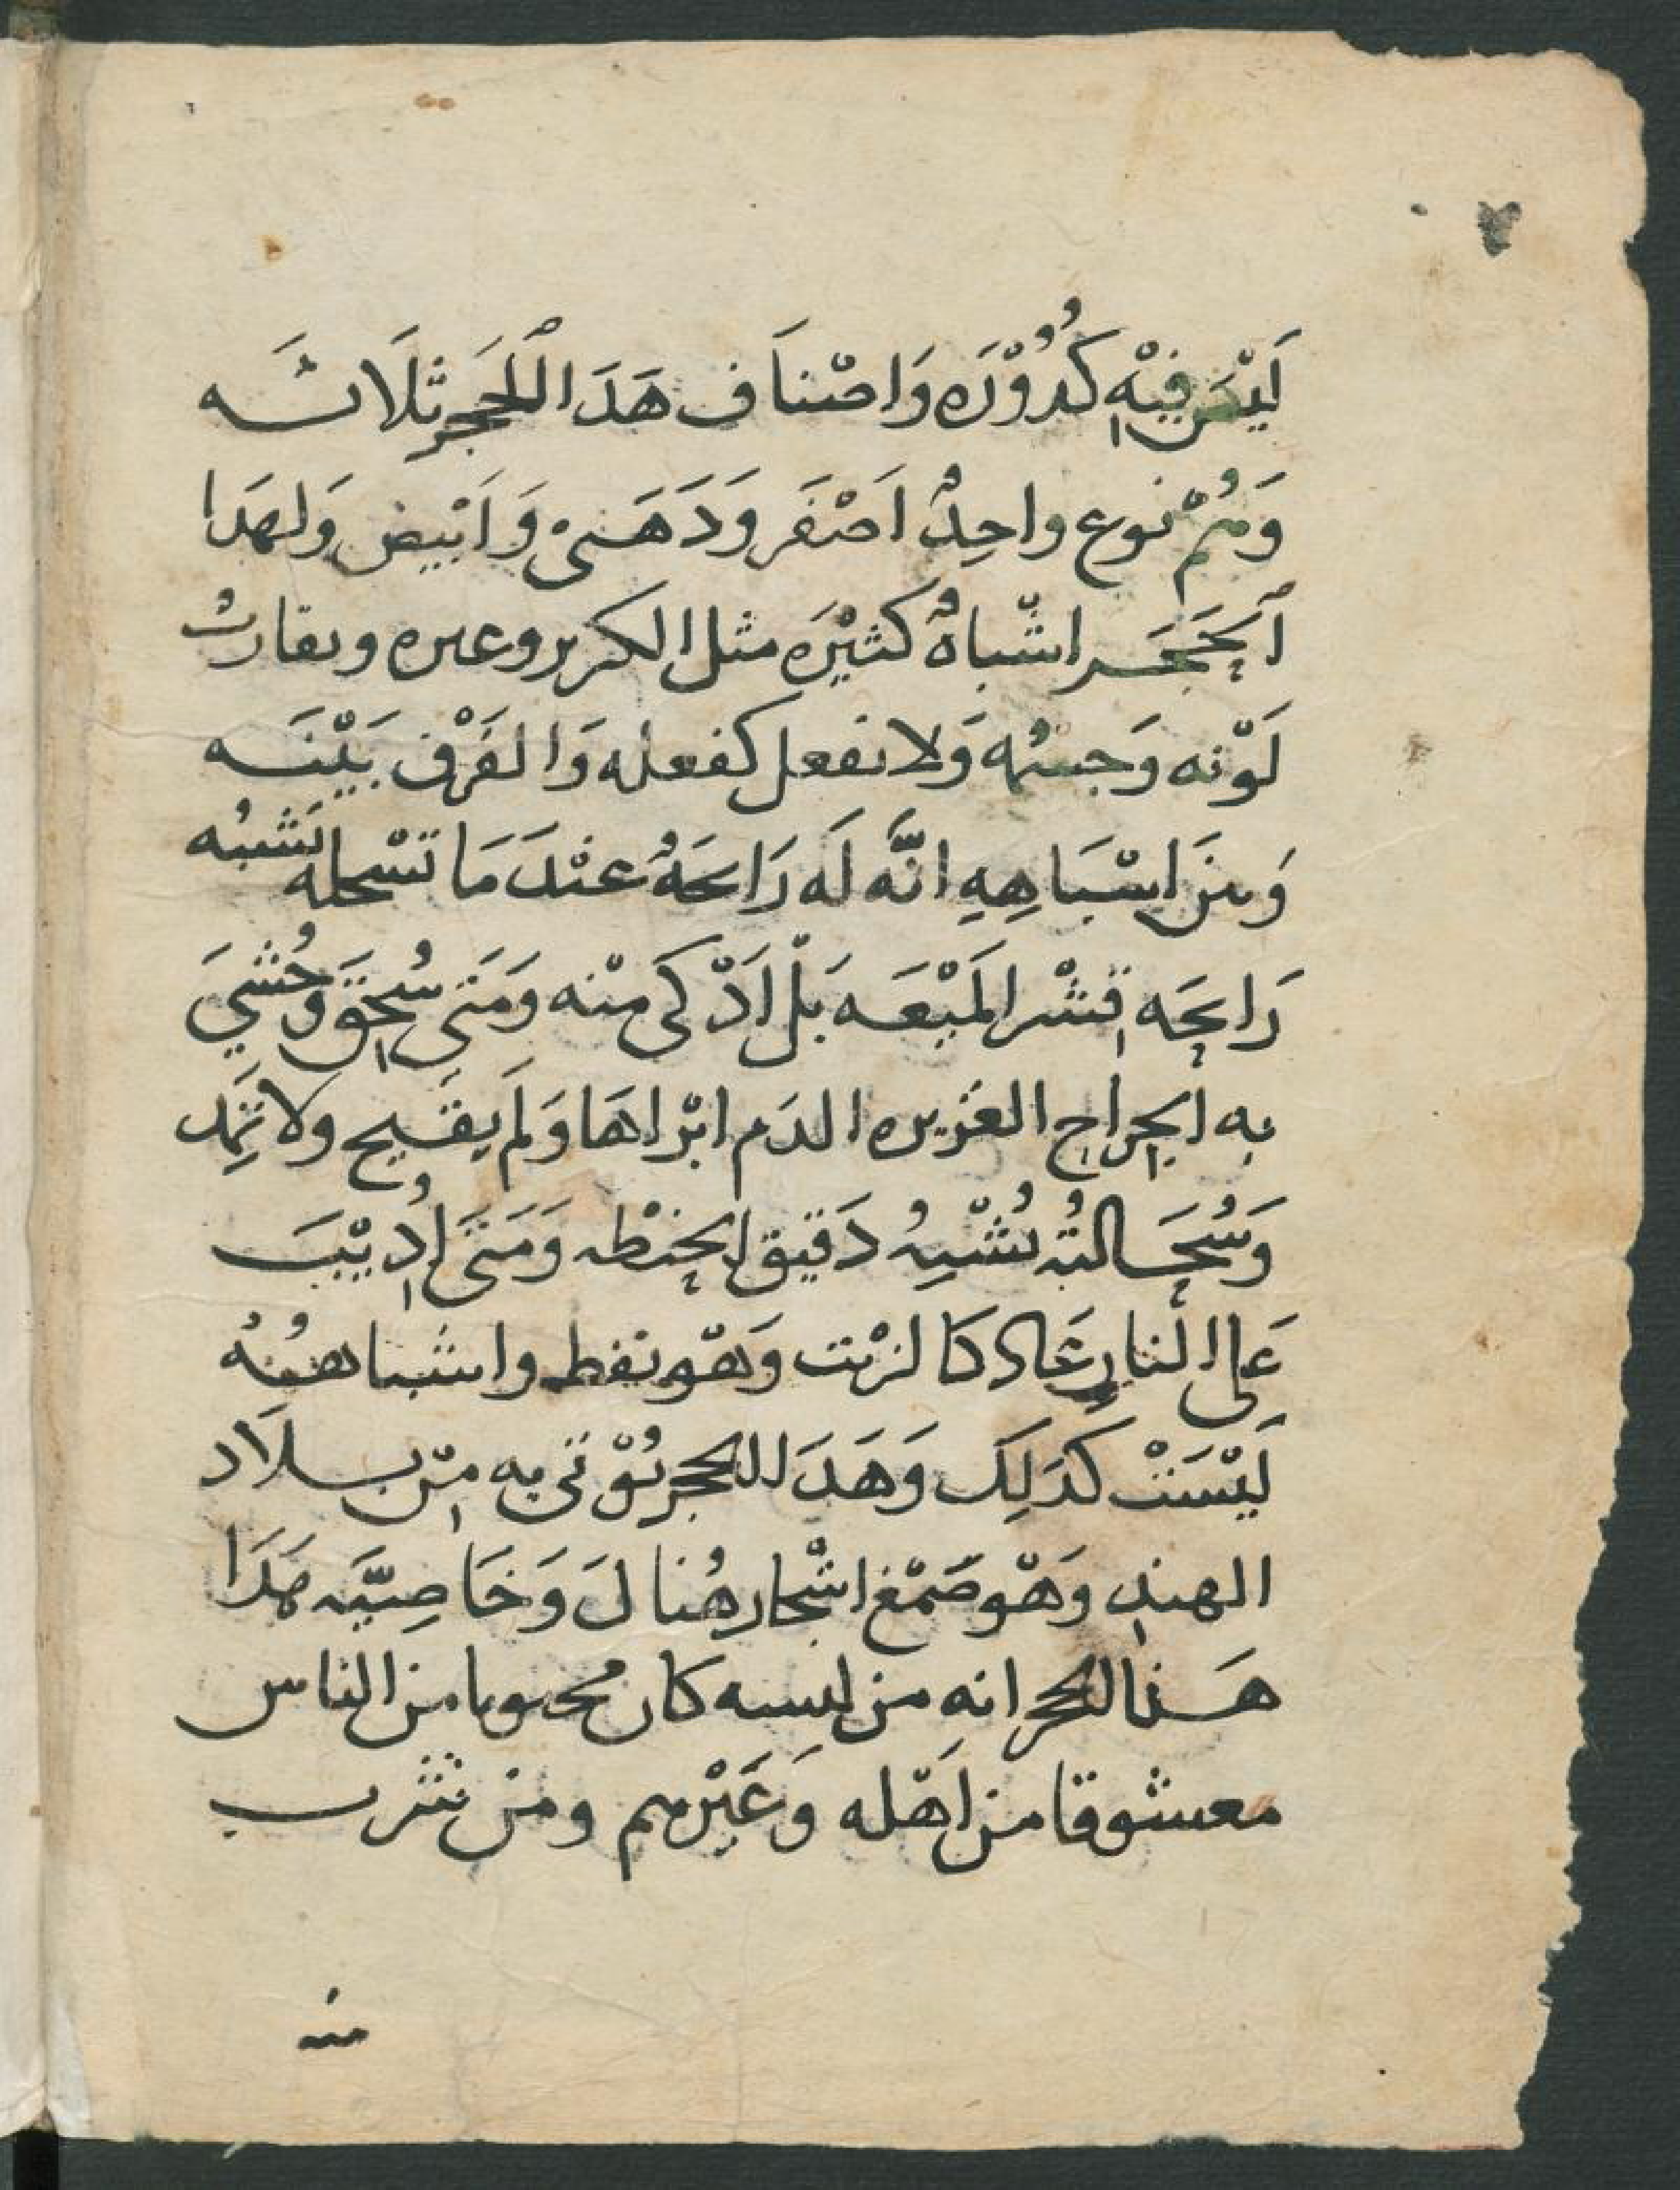 لَيْسَ فِيْهِ كُدُوْرَه وَاصْنَاف هَدَا الْلحَجَرِ ثلَاثَه
وَثُمْ نوع واحِدٌ اَصْفَر وَدَهَنىْ وَاَبْيض وَلهَدَا
اَلحَجَر اشْباهٌ كَثيْرَه مثل الكربر وعىره وىقاربُ
لَوْنه وَجسْمُه وَلا ىفعل كفعله وَالفَرْق بَيْنَه
وَبيَن اشْبَاهِهِ انَّه لَه رَايحَهٌ عنْدَ مَا تسْحله تَشبُه
رَايحَه قشْر المَيْعَه بَلْ اَدْكى منْه وَمَتى سُحِقَ وَحُشيَ
به الجراح الغزيره الدَم ابْراهَا وَلَم يقَيح ولا تَمِد
وَسُحَالتهُ تُشْبِهُ دَقيق الحِنْطه وَمَتىَ اُدِيْبَ
عَلى النارِ عَاد كَالزيْت وَهْو نفط واشْباههُ
لَيْسَتْ كَدَلِكَ وَهَدَا اللحجر يُوْتى به مِنْ بلَاد
الهندِ وَهْو صَمْغ اشْجار هُنالَ وَخَاصِيَّه هَدَا
هَذا الحجر انه من لبسه كان محبوبا من الناس
معشوقا من اَهْله وَغَيْرهم ومنْ شرب
منه